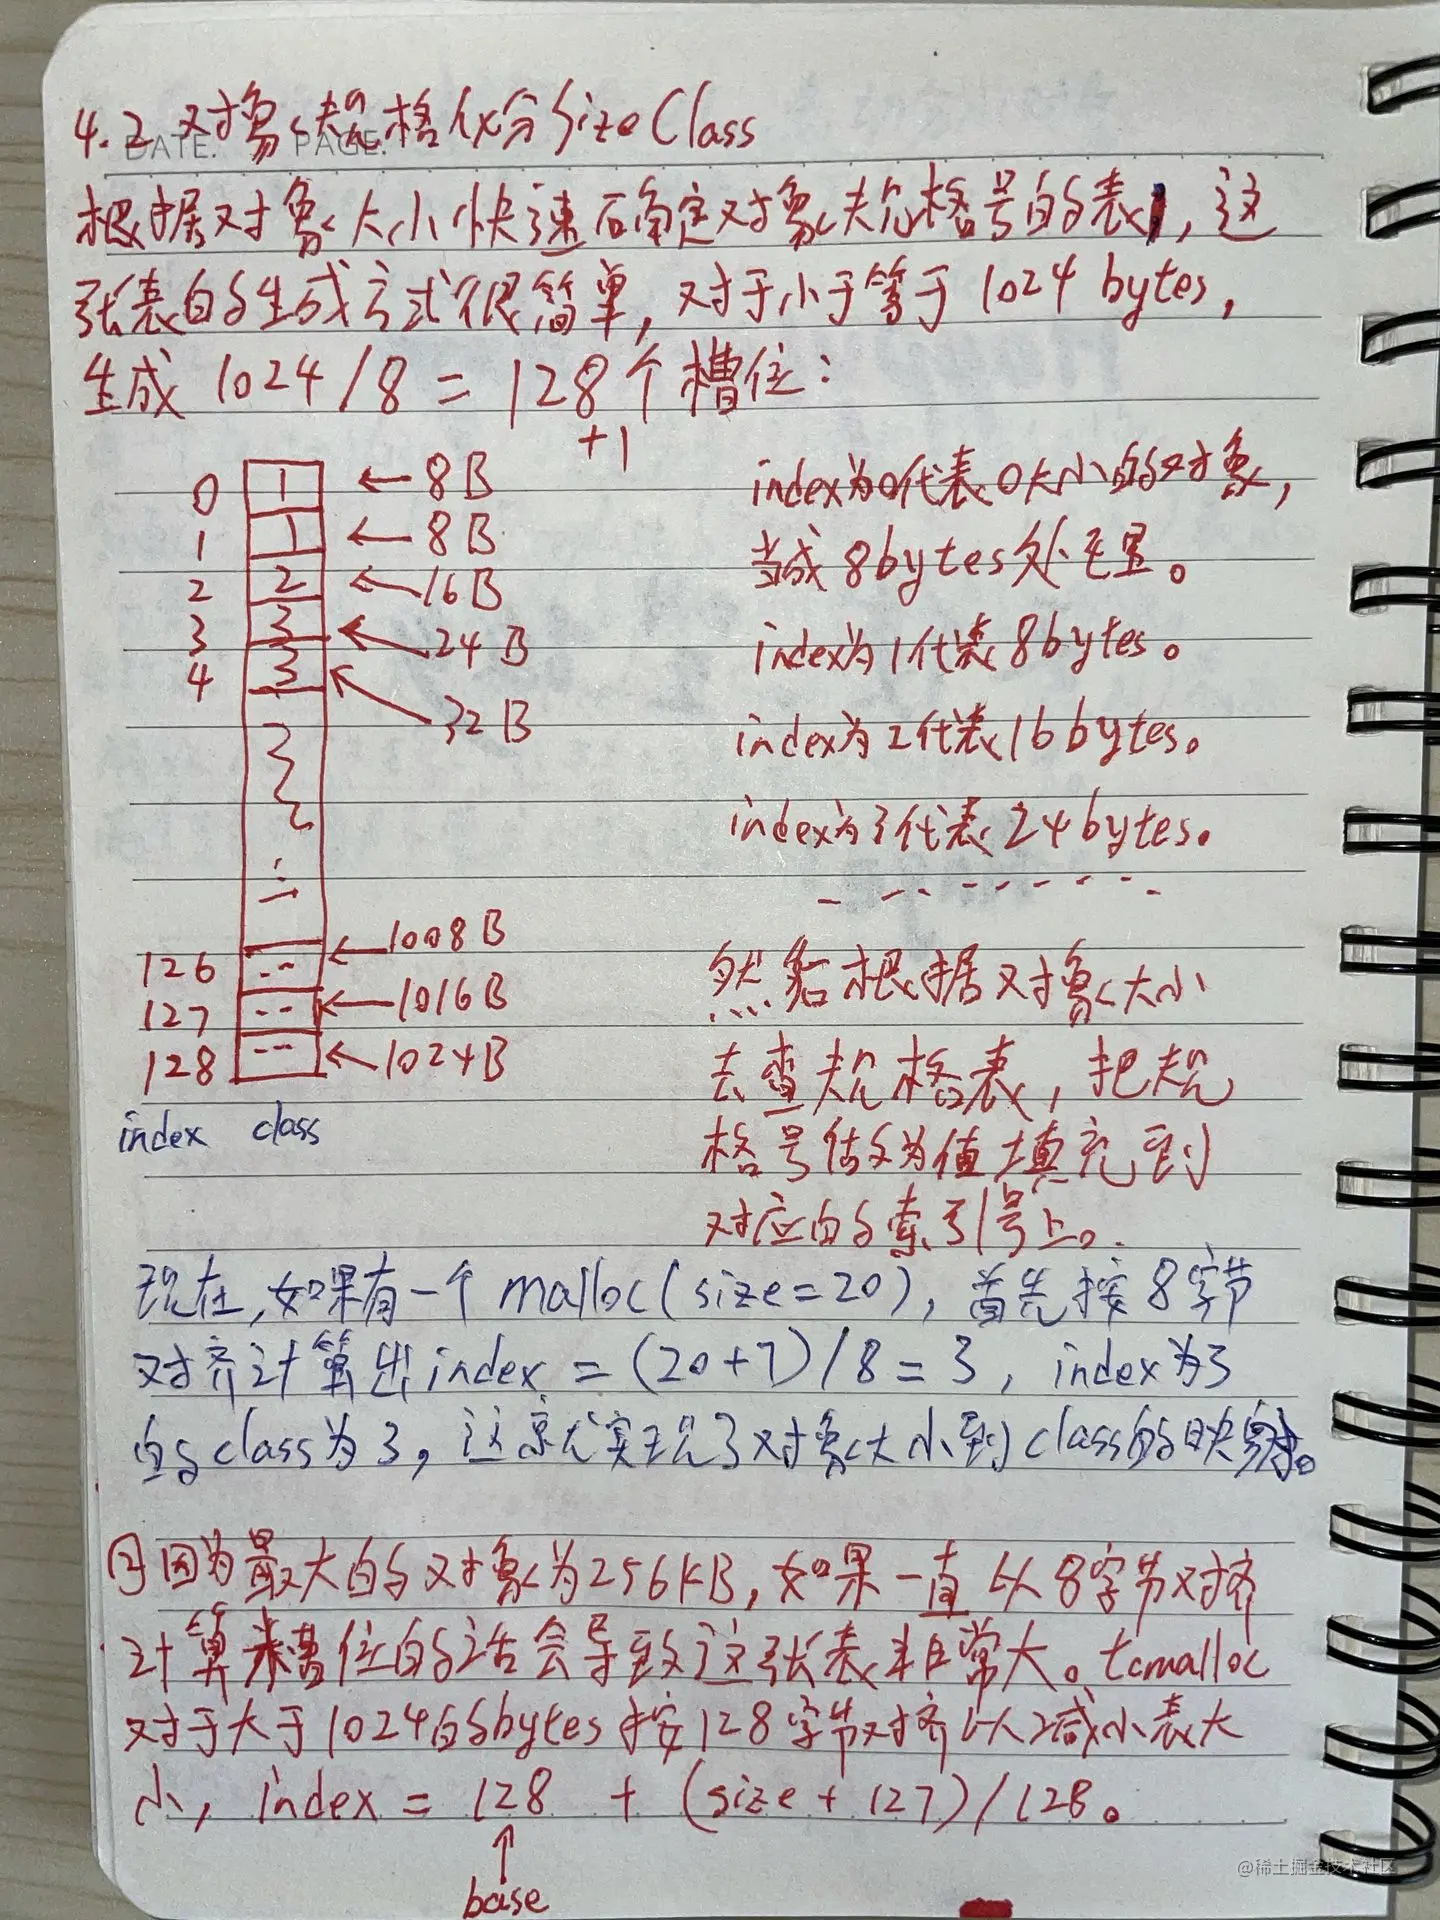 4.2 对象规格化分 Size Class
DATE. PAGE.
根据对象大小快速确定对象规格号的表,这
张表的生成方式很简单,对于小于等于1024 bytes,
生成 1024/8 = 128个槽位:
+1
0 1 ← 8B
1 1 ← 8B
2 2 ← 16B
3 3 ← 24B
4 3 ← 32B
126 -- ← 1008B
127 -- ← 1016B
128 --- ← 1024B
index class
index为0代表0大小的对象,
当成 8bytes处理。
index为1代表8bytes。
index为2代表16bytes。
index为3代表24bytes。
- - - - - - - - -
然后根据对象大小
去查规格表,把规
格号做为值填充到
对应的索引号上。
现在,如果有一个 malloc(size=20),首先按8字节
对齐计算出index = (20+7)/8 = 3, index为3
的class为3,这就实现了对象大小到class的映射。
因为最大的对象为256KB,如果一直以8字节对齐
计算槽位的话会导致这张表非常大。tcmalloc
对于大于1024的bytes按128字节对齐以减小表大
小, index = 128 + (size+127)/128。
↑
base
@稀土掘金技术社区